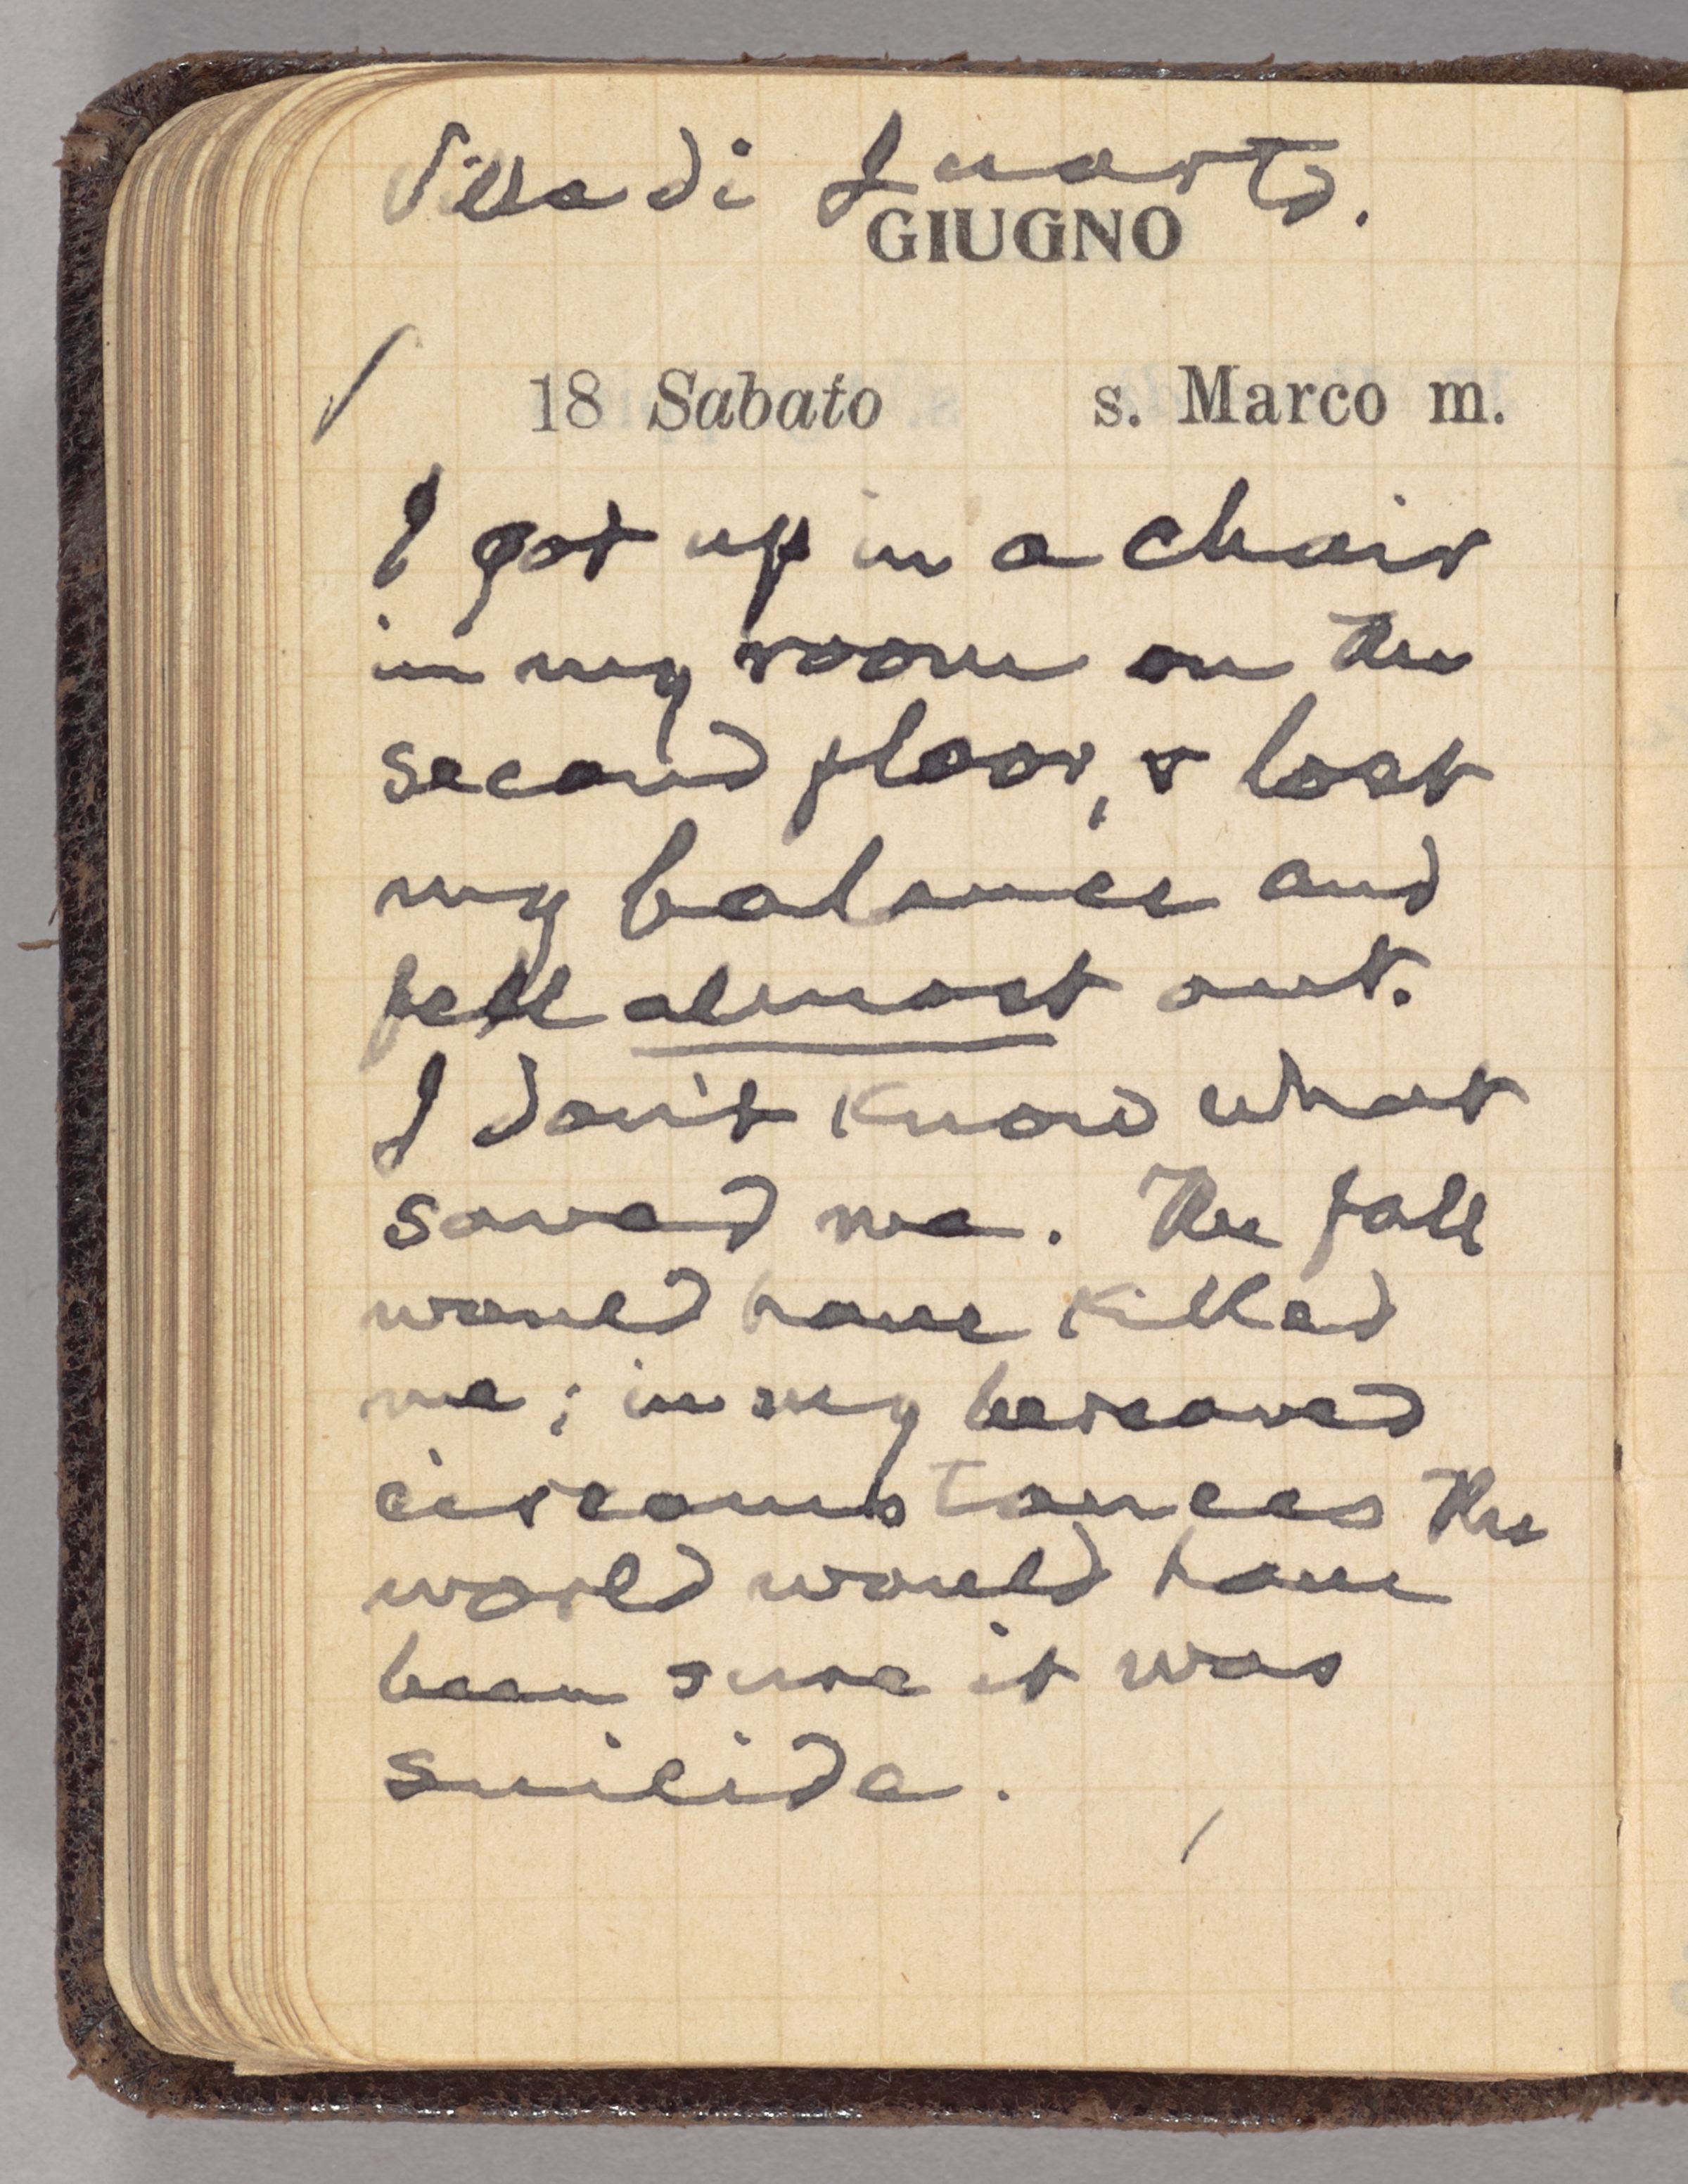 Villa di Quarto.
GIUGNO
18 Sabato s. Marco m.
I got up in a chair
in my room on the
second floor, & lost
my balance and
fell almost out.
I don't know what
saved me. The fall
would have killed
me; in my bereaved
circumstances the
world would have
been sure it was
suicide.